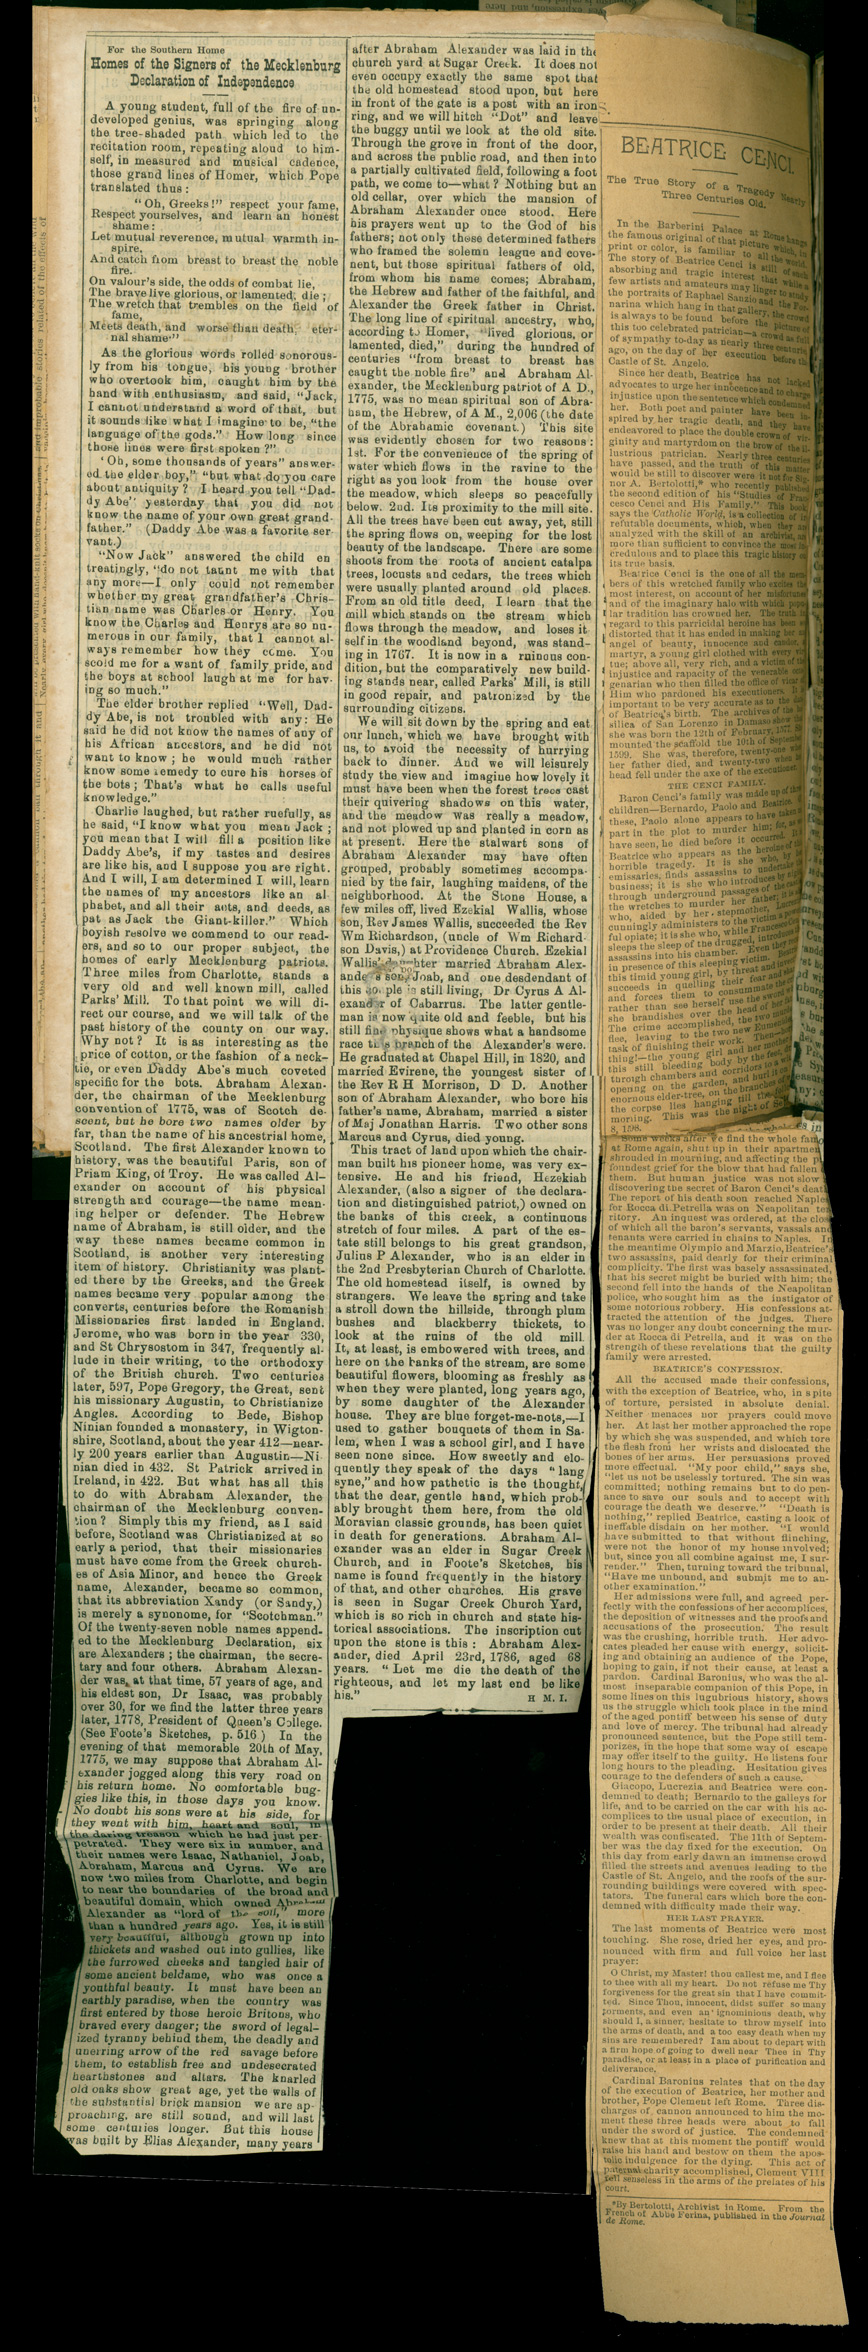 For the Southern Home
Homes of the Signers of the Mecklenburg
Declaration of Independence
A young student, full of the fire of un-
developed genius, was springing along
the tree-shaded path which led to the
recitation room, repeating aloud to him-
self, in measured and musical cadence,
those grand lines of Homer, which Pope
translated thus :
"Oh, Greeks!" respect your fame,
Respect yourselves, and learn an honest
shame:
Let mutual reverence, mutual warmth in-
spire.
And catch from breast to breast the noble
fire.
On valour's side, the odds of combat lie,
The brave live glorious, or lamented, die ;
The wretch that trembles on the field of
fame,
Meets death, and worse than death, eter-
nal shame"
As the glorious words rolled sonorous-
ly from his tongue, his young brother
who overtook him, caught him by the
hand with enthusiasm, and said, "Jack,
I cannot understand a word of that, but
it sounds like what I imagine to be, "the
language of the gods." How long since
those lines were first spoken?"
'Oh, some thousands of years" answer-
ed the elder boy," "but what do you care
about antiquity ? I heard you tell "Dad-
dy Abe" yesterday that you did not
know the name of your own great grand-
father." (Daddy Abe was a favorite ser
vant.)
"Now Jack" answered the child en
treatingly, "do not taunt me with that
any more—I only could not remember
whether my great grandfather's Chris-
tian name was Charles or Henry. You
know the Charles and Henrys are so nu-
merous in our family, that I cannot al-
ways remember how they come. You
scold me for a want of family pride, and
the boys at school laugh at me for hav-
ing so much."
The elder brother replied "Well, Dad-
dy Abe, is not troubled with any: He
said he did not know the names of any of
his African ancestors, and he did not
want to know ; he would much rather
know some remedy to cure his horses of
the bots ; That's what he calls useful
knowledge."
Charlie laughed, but rather ruefully, as
he said, "I know what you mean Jack ;
you mean that I will fill a position like
Daddy Abe's, if my tastes and desires
are like his, and I suppose you are right.
And I will, I am determined I will, learn
the names of my ancestors like an al-
phabet, and all their acts, and deeds, as
pat as Jack the Giant-killer." Which
boyish resolve we commend to our read-
ers, and so to our proper subject, the
homes of early Mecklenburg patriots.
Three miles from Charlotte, stands a
very old and well known mill, called
Parks' Mill. To that point we will di-
rect our course, and we will talk of the
past history of the county on our way.
Why not ? It is as interesting as the
price of cotton, or the fashion of a neck-
tie, or even Daddy Abe's much coveted
specific for the bots. Abraham Alexan-
der, the chairman of the Mecklenburg
convention of 1775, was of Scotch de-
scent, but he bore two names older by
far, than the name of his ancestrial home,
Scotland. The first Alexander known to
history, was the beautiful Paris, son of
Priam King, of Troy. He was called Al-
exander on account of his physical
strength and courage—the name mean-
ing helper or defender. The Hebrew
name of Abraham, is still older, and the
way these names became common in
Scotland, is another very interesting
item of history. Christianity was plant-
ed there by the Greeks, and the Greek
names became very popular among the
converts, centuries before the Romanish
Missionaries first landed in England.
Jerome, who was born in the year 330,
and St Chrysostom in 347, frequently al-
lude in their writing, to the orthodoxy
of the British church. Two centuries
later, 597, Pope Gregory, the Great, sent
his missionary Augustin, to Christianize
Angles. According to Bede, Bishop
Ninian founded a monastery, in Wigton-
shire, Scotland, about the year 412—near-
ly 200 years earlier than Augustin—Ni
nian died in 432. St Patrick arrived in
Ireland, in 422. But what has all this
to do with Abraham Alexander, the
chairman of the Mecklenburg conven-
tion ? Simply this my friend, as I said
before, Scotland was Christianized at so
early a period, that their missionaries
must have come from the Greek church-
es of Asia Minor, and hence the Greek
name, Alexander, became so common,
that its abbreviation Xandy (or Sandy,)
is merely a synonome, for "Scotchman."
Of the twenty-seven noble names append-
ed to the Mecklenburg Declaration, six
are Alexanders ; the chairman, the secre-
tary and four others. Abraham Alexan-
der was, at that time, 57 years of age, and
his eldest son, Dr Isaac, was probably
over 30, for we find the latter three years
later, 1778, President of Queen's College.
(See Foote's Sketches, p. 516 ) In the
evening of that memorable 20th of May,
1775, we may suppose that Abraham Al-
exander jogged along this very road on
his return home. No comfortable bug-
gies like this, in those days you know.
No doubt his sons were at his side, for
they went with him, heart and soul, in
the daring treason which he had just per-
petrated. They were six in number, and
their names were Isaac, Nathaniel, Joab,
Abraham, Marcus and Cyrus. We are
now two miles from Charlotte, and begin
to near the boundaries of the broad and
beautiful domain, which owned Abraham
Alexander as "lord of the soil," more
than a hundred years ago. Yes, it is still
very beautiful, although grown up into
thickets and washed out into gullies, like
the furrowed cheeks and tangled hair of
some ancient beldame, who was once a
youthful beauty. It must have been an
earthly paradise, when the country was
first entered by those heroic Britons, who
braved every danger; the sword of legal-
ized tyranny behind them, the deadly and
unerring arrow of the red savage before
them, to establish free and undesecrated
hearthstones and altars. The knarled
old oaks show great age, yet the walls of
the substantial brick mansion we are ap-
proaching, are still sound, and will last
some centuries longer. But this house
was built by Elias Alexander, many years
after Abraham Alexander was laid in the
church yard at Sugar Creek. It does not
even occupy exactly the same spot that
the old homestead stood upon, but here
in front of the gate is a post with an iron
ring, and we will hitch "Dot" and leave
the buggy until we look at the old site.
Through the grove in front of the door,
and across the public road, and then into
a partially cultivated field, following a foot
path, we come to—what ? Nothing but an
old cellar, over which the mansion of
Abraham Alexander once stood. Here
his prayers went up to the God of his
fathers; not only these determined fathers
who framed the solemn league and cove-
nent, but those spiritual fathers of old,
from whom his name comes; Abraham,
the Hebrew and father of the faithful, and
Alexander the Greek father in Christ.
The long line of spiritual ancestry, who,
according to Homer, "lived glorious, or
lamented, died," during the hundred of
centuries "from breast to breast has
caught the noble fire" and Abraham Al-
exander, the Mecklenburg patriot of A D.,
1775, was no mean spiritual son of Abra-
ham, the Hebrew, of A M., 2,006 (the date
of the Abrahamic covenant.) This site
was evidently chosen for two reasons :
1st. For the convenience of the spring of
water which flows in the ravine to the
right as you look from the house over
the meadow, which sleeps so peacefully
below. 2nd. Its proximity to the mill site.
All the trees have been cut away, yet, still
the spring flows on, weeping for the lost
beauty of the landscape. There are some
shoots from the roots of ancient catalpa
trees, locusts and cedars, the trees which
were usually planted around old places.
From an old title deed, I learn that the
mill which stands on the stream which
flows through the meadow, and loses it
self in the woodland beyond, was stand-
ing in 1767. It is now in a ruinous con-
dition, but the comparatively new build-
ing stands near, called Parks' Mill, is still
in good repair, and patronized by the
surrounding citizens.
We will sit down by the spring and eat
our lunch, which we have brought with
us, to avoid the necessity of hurrying
back to dinner. And we will leisurely
study the view and imagine how lovely it
must have been when the forest trees cast
their quivering shadows on this water,
and the meadow was really a meadow,
and not plowed up and planted in corn as
at present. Here the stalwart sons of
Abraham Alexander may have often
grouped, probably sometimes accompa-
nied by the fair, laughing maidens, of the
neighborhood. At the Stone House, a
few miles off, lived Ezekial Wallis, whose
son, Rev James Wallis, succeeded the Rev
Wm Richardson, (uncle of Wm Richard-
son Davis,) at Providence Church. Ezekial
Wallis' daughter married Abraham Alex-
ander's son, Joab, and one desdendant of
this couple is still living, Dr Cyrus A Al-
exander of Cabarrus. The latter gentle-
man is now quite old and feeble, but his
still fine physique shows what a handsome
race this branch of the Alexander's were.
He graduated at Chapel Hill, in 1820, and
married Evirene, the youngest sister of
the Rev R H Morrison, D D. Another
son of Abraham Alexander, who bore his
father's name, Abraham, married a sister
of Maj Jonathan Harris. Two other sons
Marcus and Cyrus, died young.
This tract of land upon which the chair-
man built his pioneer home, was very ex-
tensive. He and his friend, Hezekiah
Alexander, (also a signer of the declara-
tion and distinguished patriot,) owned on
the banks of this creek, a continuous
stretch of four miles. A part of the es-
tate still belongs to his great grandson,
Julius P Alexander, who is an elder in
the 2nd Presbyterian Church of Charlotte.
The old homestead itself, is owned by
strangers. We leave the spring and take
a stroll down the hillside, through plum
bushes and blackberry thickets, to
look at the ruins of the old mill.
It, at least, is embowered with trees, and
here on the banks of the stream, are some
beautiful flowers, blooming as freshly as
when they were planted, long years ago,
by some daughter of the Alexander
house. They are blue forget-me-nots,—I
used to gather bouquets of them in Sa-
lem, when I was a school girl, and I have
seen none since. How sweetly and elo-
quently they speak of the days "lang
syne," and how pathetic is the thought,
that the dear, gentle hand, which prob-
ably brought them here, from the old
Moravian classic grounds, has been quiet
in death for generations. Abraham Al-
exander was an elder in Sugar Creek
Church, and in Foote's Sketches, his
name is found frequently in the history
of that, and other churches. His grave
is seen in Sugar Creek Church Yard,
which is so rich in church and state his-
torical associations. The inscription cut
upon the stone is this : Abraham Alex-
ander, died April 23rd, 1786, aged 68
years. "Let me die the death of the
righteous, and let my last end be like
his." H M. I.
BEATRICE CENCI.
The True Story of a Tragedy Nearly
Three Centuries Old.
In the Barberini Palace at Rome hangs
the famous original of that picture which, in
print or color, is familiar to all the world.
The story of Beatrice Cenci is still of such
absorbing and tragic interest that while a
few artists and amateurs may linger to study
the portraits of Raphael Sanzio and the For-
narina which hang in that gallery, the crowd
is always to be found before the picture of
this too celebrated patrician—a crowd as full
of sympathy to-day as nearly three centuries
ago, on the day of her execution before the
Castle of St. Angelo.
Since her death, Beatrice has not lacked
advocates to urge her innocence and to charge
injustice upon the sentence which condemned
her. Both poet and painter have been in-
spired by her tragic death, and they have
endeavored to place the double crown of vir-
ginity and martyrdom on the brow of the il-
lustrious patrician. Nearly three centuries
have passed, and the truth of this matter
would be still to discover were it not for Sig-
nor A. Bertolotti,* who recently published
the second edition of his "Studies of Fran-
cesco Cenci and His Family." This book,
says the Catholic World, is a collection of ir-
refutable documents, which, when they are
analyzed with the skill of an archivist, are
more than sufficient to convince the most in-
credulous and to place this tragic history on
its true basis.
Beatrice Cenci is the one of all the mem-
bers of this wretched family who excites the
most interest, on account of her misfortunes
and of the imaginary halo with which popu-
lar tradition has crowned her. The truth in
regard to this parricidal heroine has been so
distorted that it has ended in making her an
angel of beauty, innocence and candor, a
martyr, a young girl clothed with every vir-
tue; above all, very rich, and a victim of the
injustice and rapacity of the venerable
genarian who then filled the office of vicar of
Him who pardoned his executioners. It is
important to be very accurate as to the date
of Beatrice's birth. The archives of the Ba-
silica of San Lorenzo in Damaso show that
she was born the 12th of February, 1577. She
mounted the scaffold the 10th of September,
1599. She was, therefore, twenty-one when
her father died, and twenty-two when her
head fell under the axe of the executioner.
THE CENCI FAMILY.
Baron Cenci's family was made up of three
children—Bernardo, Paolo and Beatrice. Of
these, Paolo alone appears to have taken no
part in the plot to murder him; for, as we
have seen, he died before it occurred. It is
Beatrice who appears as the heroine of this
horrible tragedy. It is she who, by her
emissaries, finds assassins to undertake the
business; it is she who introduces by night
through underground passages of the
the wretches to murder her father; it is she
who, aided by her stepmother, Lucrezia,
cunningly administers to the victim a power-
ful opiate; it is she who, while Francesco
sleeps the sleep of the drugged, introduces the
assassins into his chamber. Even they
in presence of this sleeping victim.
this timid young girl, by threat and
succeeds in quelling their fear and
and forces them to consummate the
rather than see herself use the sword
she brandishes over the head of her
The crime accomplished, the two
flee, leaving to the two new Eumenides the
task of finishing their work. Then
thing!—the young girl and her mother
this still bleeding body by the feet,
through chambers and corridors to a
opening on the garden, and hurl it on an
enormous elder-tree, on the branches of
the corpse lies hanging till the
morning. This was the night of Sept.
8, 1598.
Some weeks after we find the whole family
at Rome again, shut up in their apartment
shrouded in mourning, and affecting the pro-
foundest grief for the blow that had fallen
them. But human justice was not slow
discovering the secret of Baron Cenci's death.
The report of his death soon reached Naples,
for Rocca di Petrella was on Neapolitan ter-
ritory. An inquest was ordered, at the close
of which all the baron's servants, vassals and
tenants were carried in chains to Naples. In
the meantime Olympio and Marzio, Beatrice's
two assassins, paid dearly for their criminal
complicity. The first was basely assassinated,
that his secret might be buried with him; the
second fell into the hands of the Neapolitan
police, who sought him as the instigator of
some notorious robbery. His confessions at-
tracted the attention of the judges. There
was no longer any doubt concerning the mur-
der at Rocca di Petrella, and it was on the
strength of these revelations that the guilty
family were arrested.
BEATRICE'S CONFESSION.
All the accused made their confessions,
with the exception of Beatrice, who, in spite
of torture, persisted in absolute denial.
Neither menaces nor prayers could move
her. At last her mother approached the rope
by which she was suspended, and which tore
the flesh from her wrists and dislocated the
bones of her arms. Her persuasions proved
more effectual. "My poor child," says she,
"let us not be uselessly tortured. The sin was
committed; nothing remains but to do pen-
ance to save our souls and to accept with
courage the death we deserve." "Death is
nothing," replied Beatrice, casting a look of
ineffable disdain on her mother. "I would
have submitted to that without flinching,
were not the honor of my house involved;
but, since you all combine against me, I sur-
render." Then, turning toward the tribunal,
"Have me unbound, and submit me to an-
other examination."
Her admissions were full, and agreed per-
fectly with the confessions of her accomplices,
the deposition of witnesses and the proofs and
accusations of the prosecution. The result
was the crushing, horrible truth. Her advo-
cates pleaded her cause with energy, solicit-
ing and obtaining an audience of the Pope,
hoping to gain, if not their cause, at least a
pardon. Cardinal Baronius, who was the al-
most inseparable companion of this Pope, in
some lines on this lugubrious history, shows
us the struggle which took place in the mind
of the aged pontiff between his sense of duty
and love of mercy. The tribunal had already
pronounced sentence, but the Pope still tem-
porizes, in the hope that some way of escape
may offer itself to the guilty. He listens four
long hours to the pleading. Hesitation gives
courage to the defenders of such a cause.
Giacopo, Lucrezia and Beatrice were con-
demned to death; Bernardo to the galleys for
life, and to be carried on the car with his ac-
complices to the usual place of execution, in
order to be present at their death. All their
wealth was confiscated. The 11th of Septem-
ber was the day fixed for the execution. On
this day from early dawn an immense crowd
filled the streets and avenues leading to the
Castle of St. Angelo, and the roofs of the sur-
rounding buildings were covered with spec-
tators. The funeral cars which bore the con-
demned with difficulty made their way.
HER LAST PRAYER.
The last moments of Beatrice were most
touching. She rose, dried her eyes, and pro-
nounced with firm and full voice her last
prayer:
O Christ, my Master! thou callest me, and I flee
to thee with all my heart. Do not refuse me Thy
forgiveness for the great sin that I have commit-
ted. Since Thou, innocent, didst suffer so many
torments, and even an ignominious death, why
should I, a sinner, hesitate to throw myself into
the arms of death, and a too easy death when my
sins are remembered? I am about to depart with
a firm hope of going to dwell near Thee in Thy
paradise, or at least in a place of purification and
deliverance.
Cardinal Baronius relates that on the day
of the execution of Beatrice, her mother and
brother, Pope Clement left Rome. Three dis-
charges of cannon announced to him the mo-
ment these three heads were about to fall
under the sword of justice. The condemned
knew that at this moment the pontiff would
raise his hand and bestow on them the apos-
tolic indulgence for the dying. This act of
paternal charity accomplished, Clement VIII
fell senseless in the arms of the prelates of his
court.
*By Bertolotti, Archivist in Rome. From the
French of Abbe Ferina, published in the Journal
de Rome.